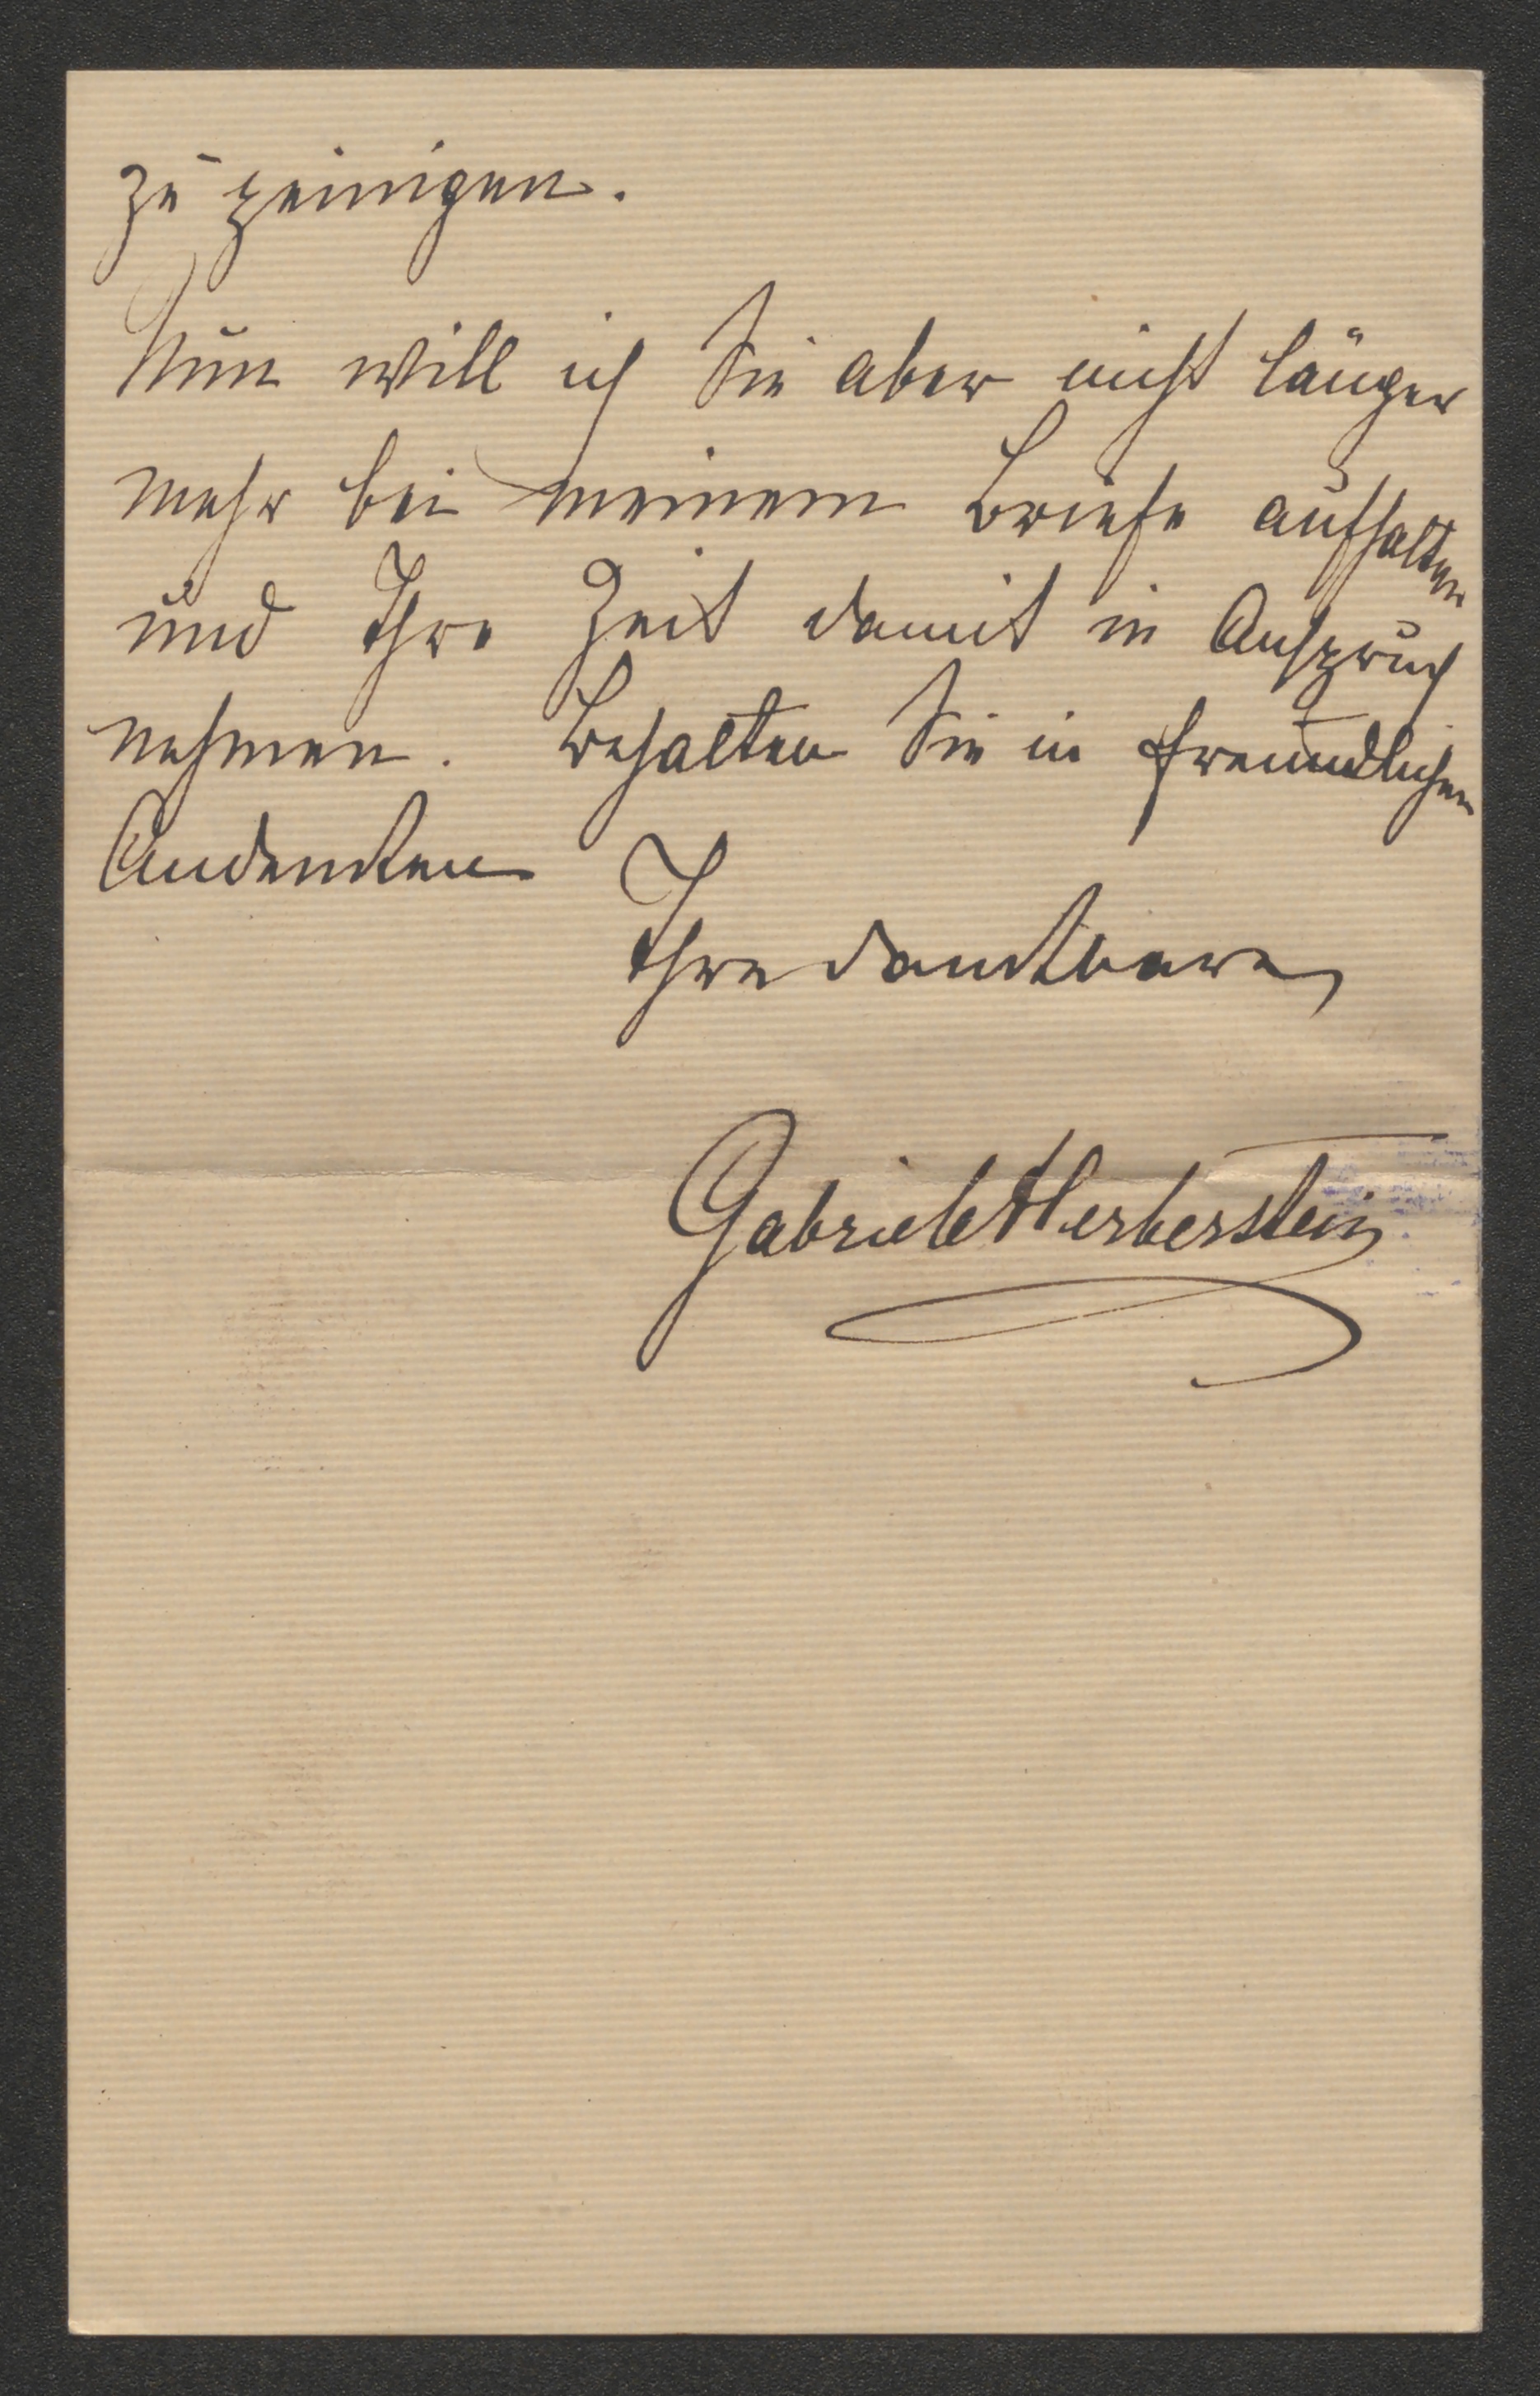 zu peinigen.
Nun will ich Sie aber nicht länger
mehr bei meinem Briefe aufhalten
und Ihre Zeit damit in Anspruch
nehmen. Behalten Sie in freundlichem
Andenken
Ihre dankbare
Gabriele Herberstein